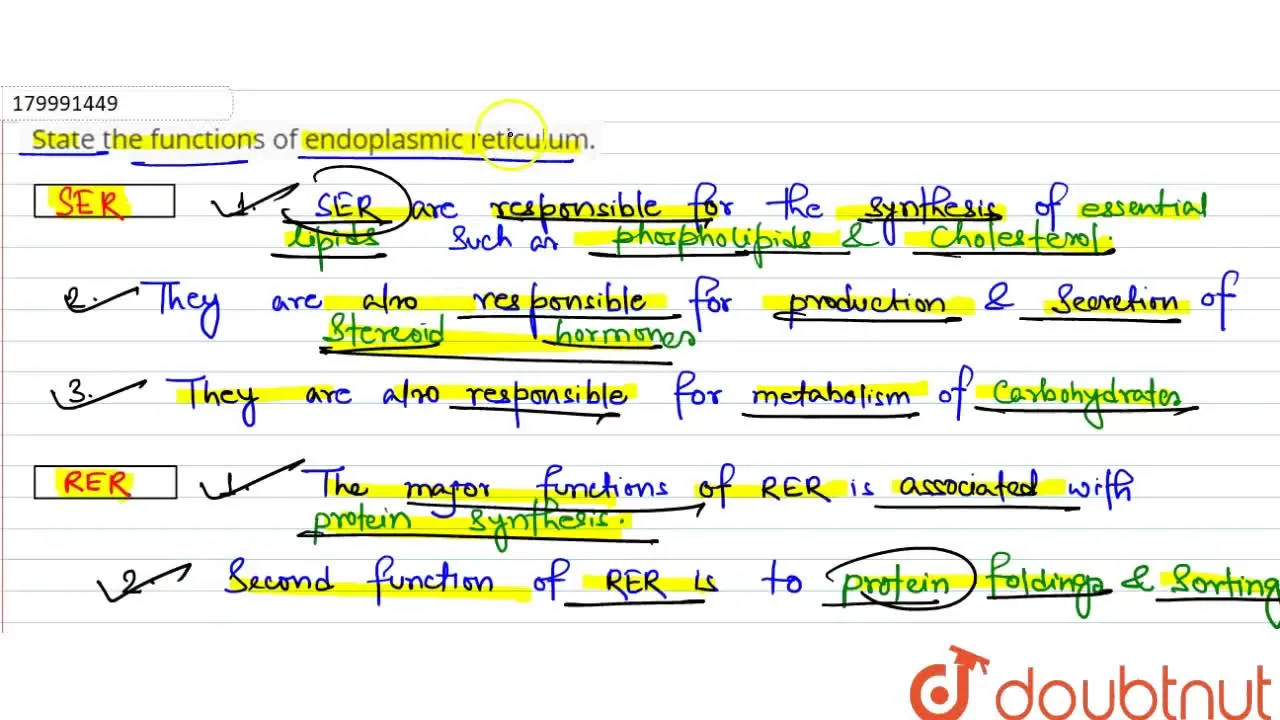 179991449
State the functions of endoplasmic reticulum.
SER 1. SER are responsible for the synthesis of essential
lipids such as phospholipids & cholesterol.
2. They are also responsible for production & secretion of
steroid hormones
3. They are also responsible for metabolism of carbohydrates
RER 1. The major functions of RER is associated with
protein synthesis.
2. Second function of RER is to protein folding & sorting
doubtnut